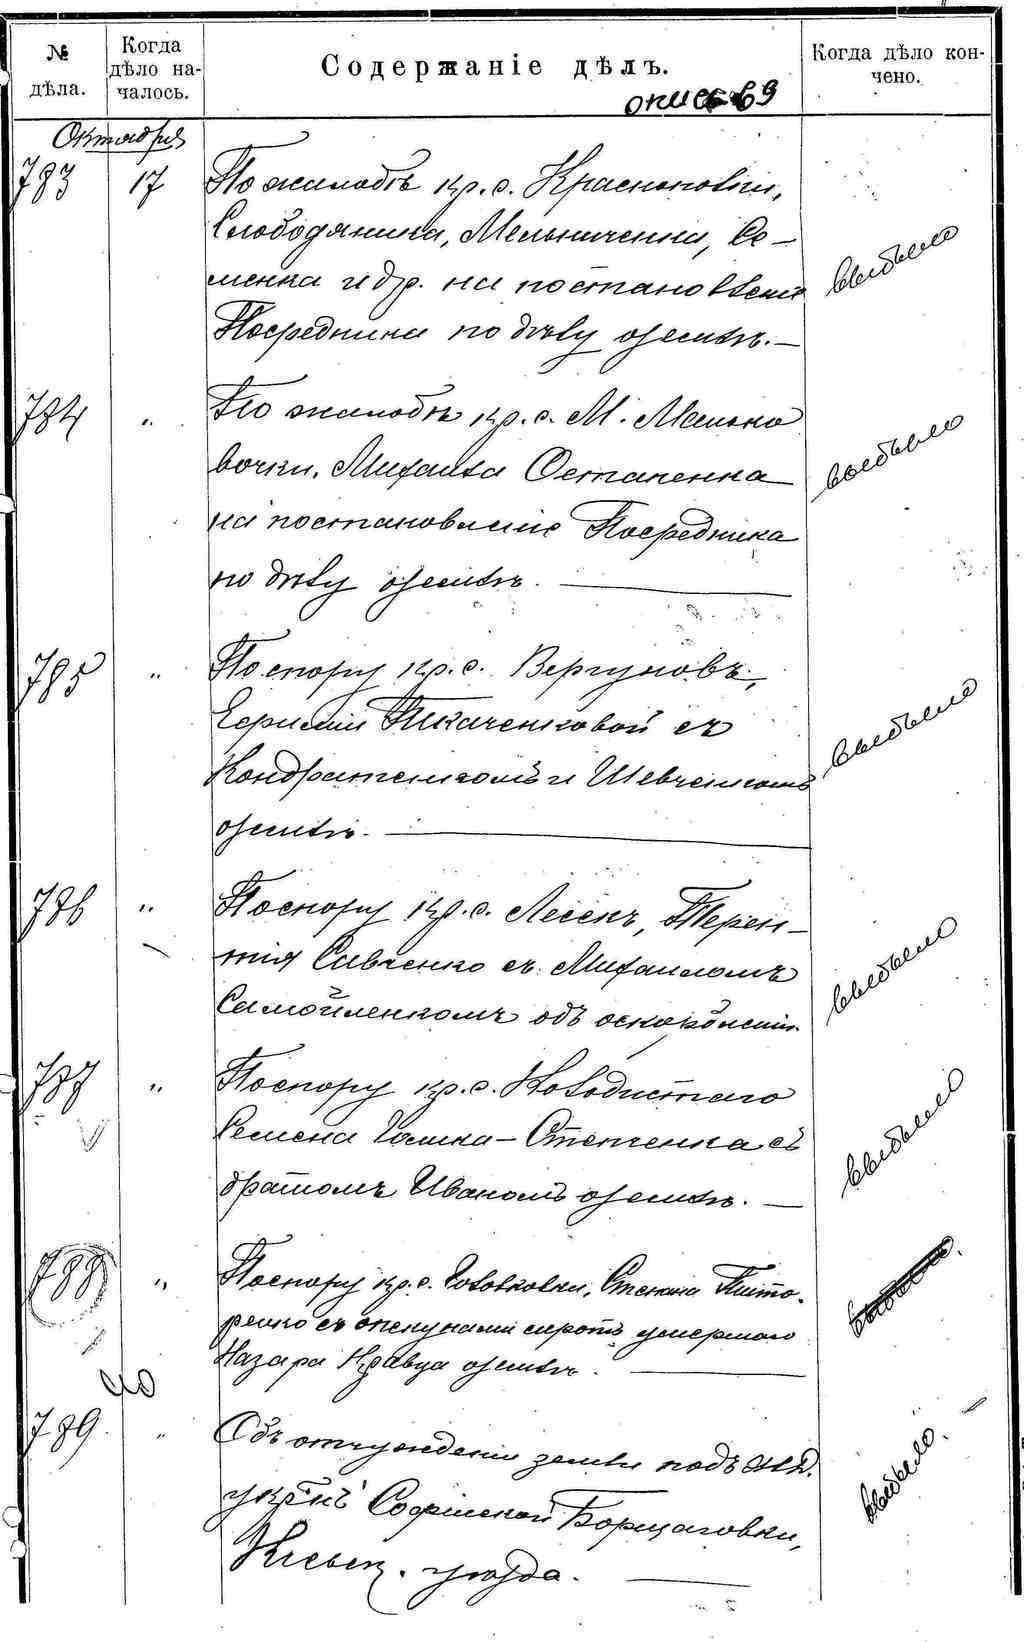 № дѣла.
Когда дѣло на-
чалось.
Содержаніе дѣлъ.
Когда дѣло кон-
чено.
Октября
783 17 По жалобѣ кр. с. Краснополки,
Слободяника, Мельниченка, Се-
менка и др. на постановленіе
Посредника по дѣлу о землѣ. —
выбыло
784 " По жалобѣ кр. с. М. Мань­ко
вочки, Михаила Остапенка
на постановленіе Посредника
по дѣлу о землѣ. —
выбыло
785 " По спору кр. с. Вергуновъ,
Ефиміи Ткаченковой съ
Кондратенкомъ и Шевченкомъ
о землѣ. —
выбыло
786 " По спору кр. с. Лесекъ, Терен-
тія Савченко съ Михаиломъ
Самойленкомъ объ оскорбленіи.
выбыло
787 " По спору кр. с.
Семена Степченка съ
братомъ Иваномъ о землѣ. —
выбыло
788 " По спору кр. с. Головковки, Степана
съ опекунами сиротъ умершаго
Назара Кравца о землѣ. —
выбыло.
789 " Объ отчужденіи земли подъ ж. д.
укрѣп. Софійской Борщаговки,
Кіевск. уѣзда. —
выбыло.